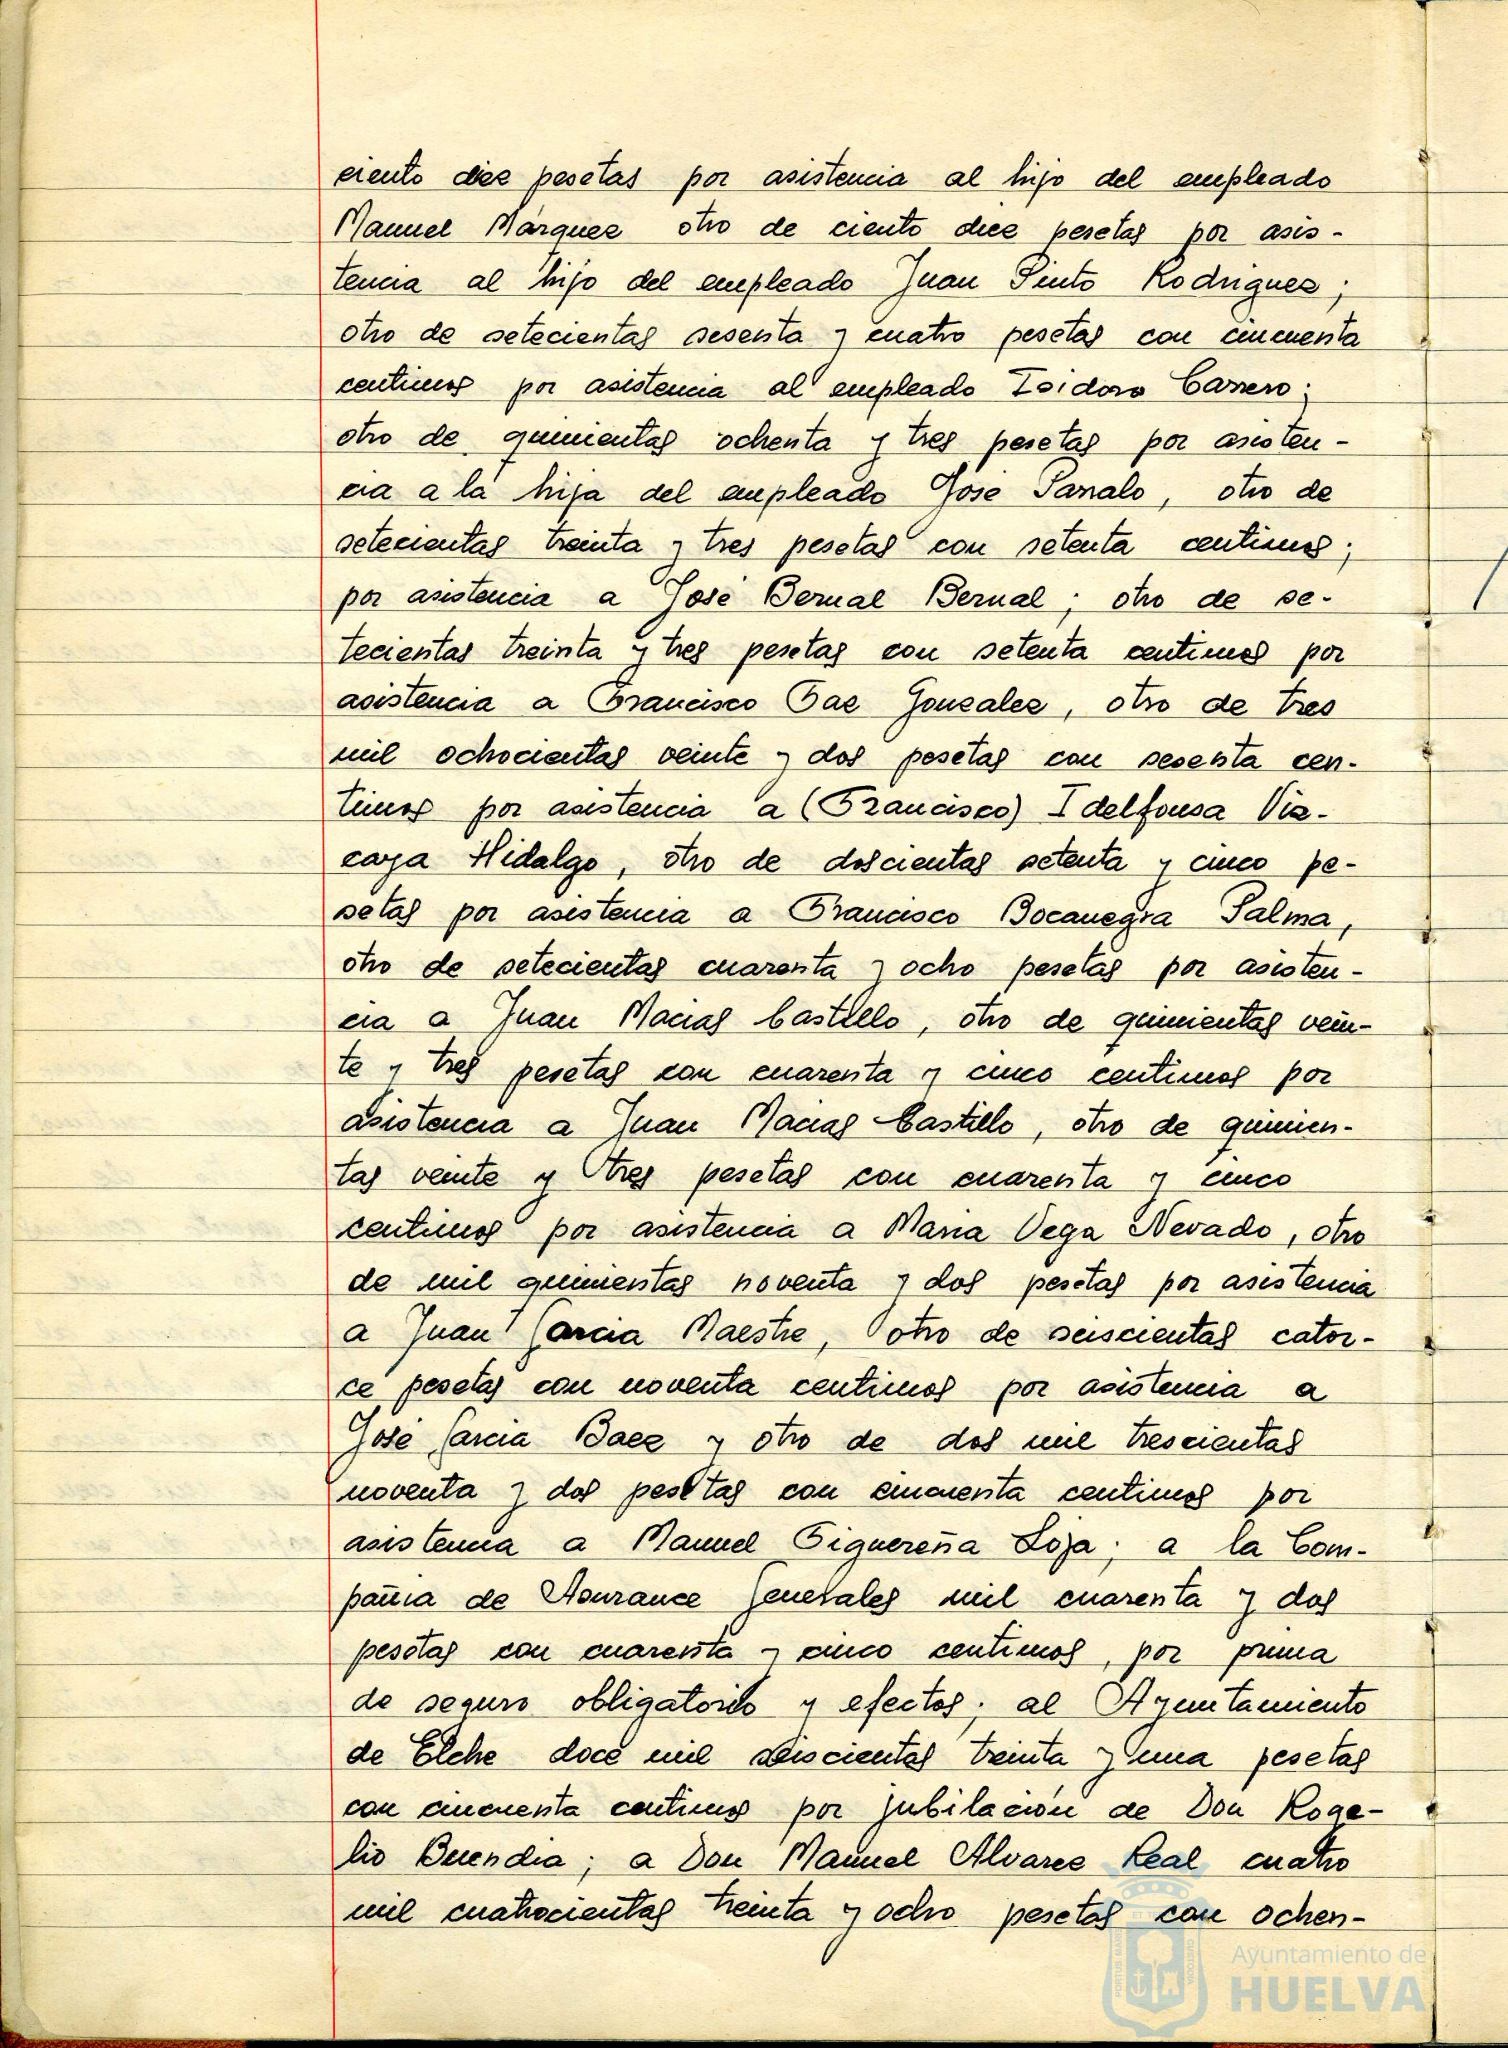 ciento diez pesetas por asistencia al hijo del empleado
Manuel Márquez otro de ciento diez pesetas por asis-
tencia al hijo del empleado Juan Pinto Rodriguez;
otro de setecientas sesenta y cuatro pesetas con cincuenta
centimos por asistencia al empleado Isidoro Carrero;
otro de quinientas ochenta y tres pesetas por asisten-
cia a la hija del empleado José Panalo, otro de
setecientas treinta y tres pesetas con setenta centimos;
por asistencia a José Bernal Bernal; otro de se-
tecientas treinta y tres pesetas con setenta centimos por
asistencia a Francisco Paz Gonzalez, otro de tres
mil ochocientas veinte y dos pesetas con sesenta cen-
timos por asistencia a (Francisco) Idelfonsa Viz-
caya Hidalgo, otro de doscientas setenta y cinco pe-
setas por asistencia a Francisco Bocanegra Palma,
otro de setecientas cuarenta y ocho pesetas por asisten-
cia a Juan Macias Castillo, otro de quinientas vein-
te y tres pesetas con cuarenta y cinco centimos por
asistencia a Juan Macias Castillo, otro de quinien-
tas veinte y tres pesetas con cuarenta y cinco
centimos por asistencia a Maria Vega Nevado, otro
de mil quinientas noventa y dos pesetas por asistencia
a Juan Garcia Maestre, otro de seiscientas cator-
ce pesetas con noventa centimos por asistencia a
José Garcia Baez y otro de dos mil trescientas
noventa y dos pesetas con cincuenta centimos por
asistencia a Manuel Figuereña Loja; a la Com-
pañia de Assurance Generales mil cuarenta y dos
pesetas con cuarenta y cinco centimos, por prima
de seguro obligatorio y efectos; al Ayuntamiento
de Elche doce mil seiscientas treinta y una pesetas
con cincuenta centimos por jubilación de Don Roge-
lio Buendia; a Don Manuel Alvarez Real cuatro
mil cuatrocientas treinta y ocho pesetas con ochen-
Ayuntamiento de
HUELVA